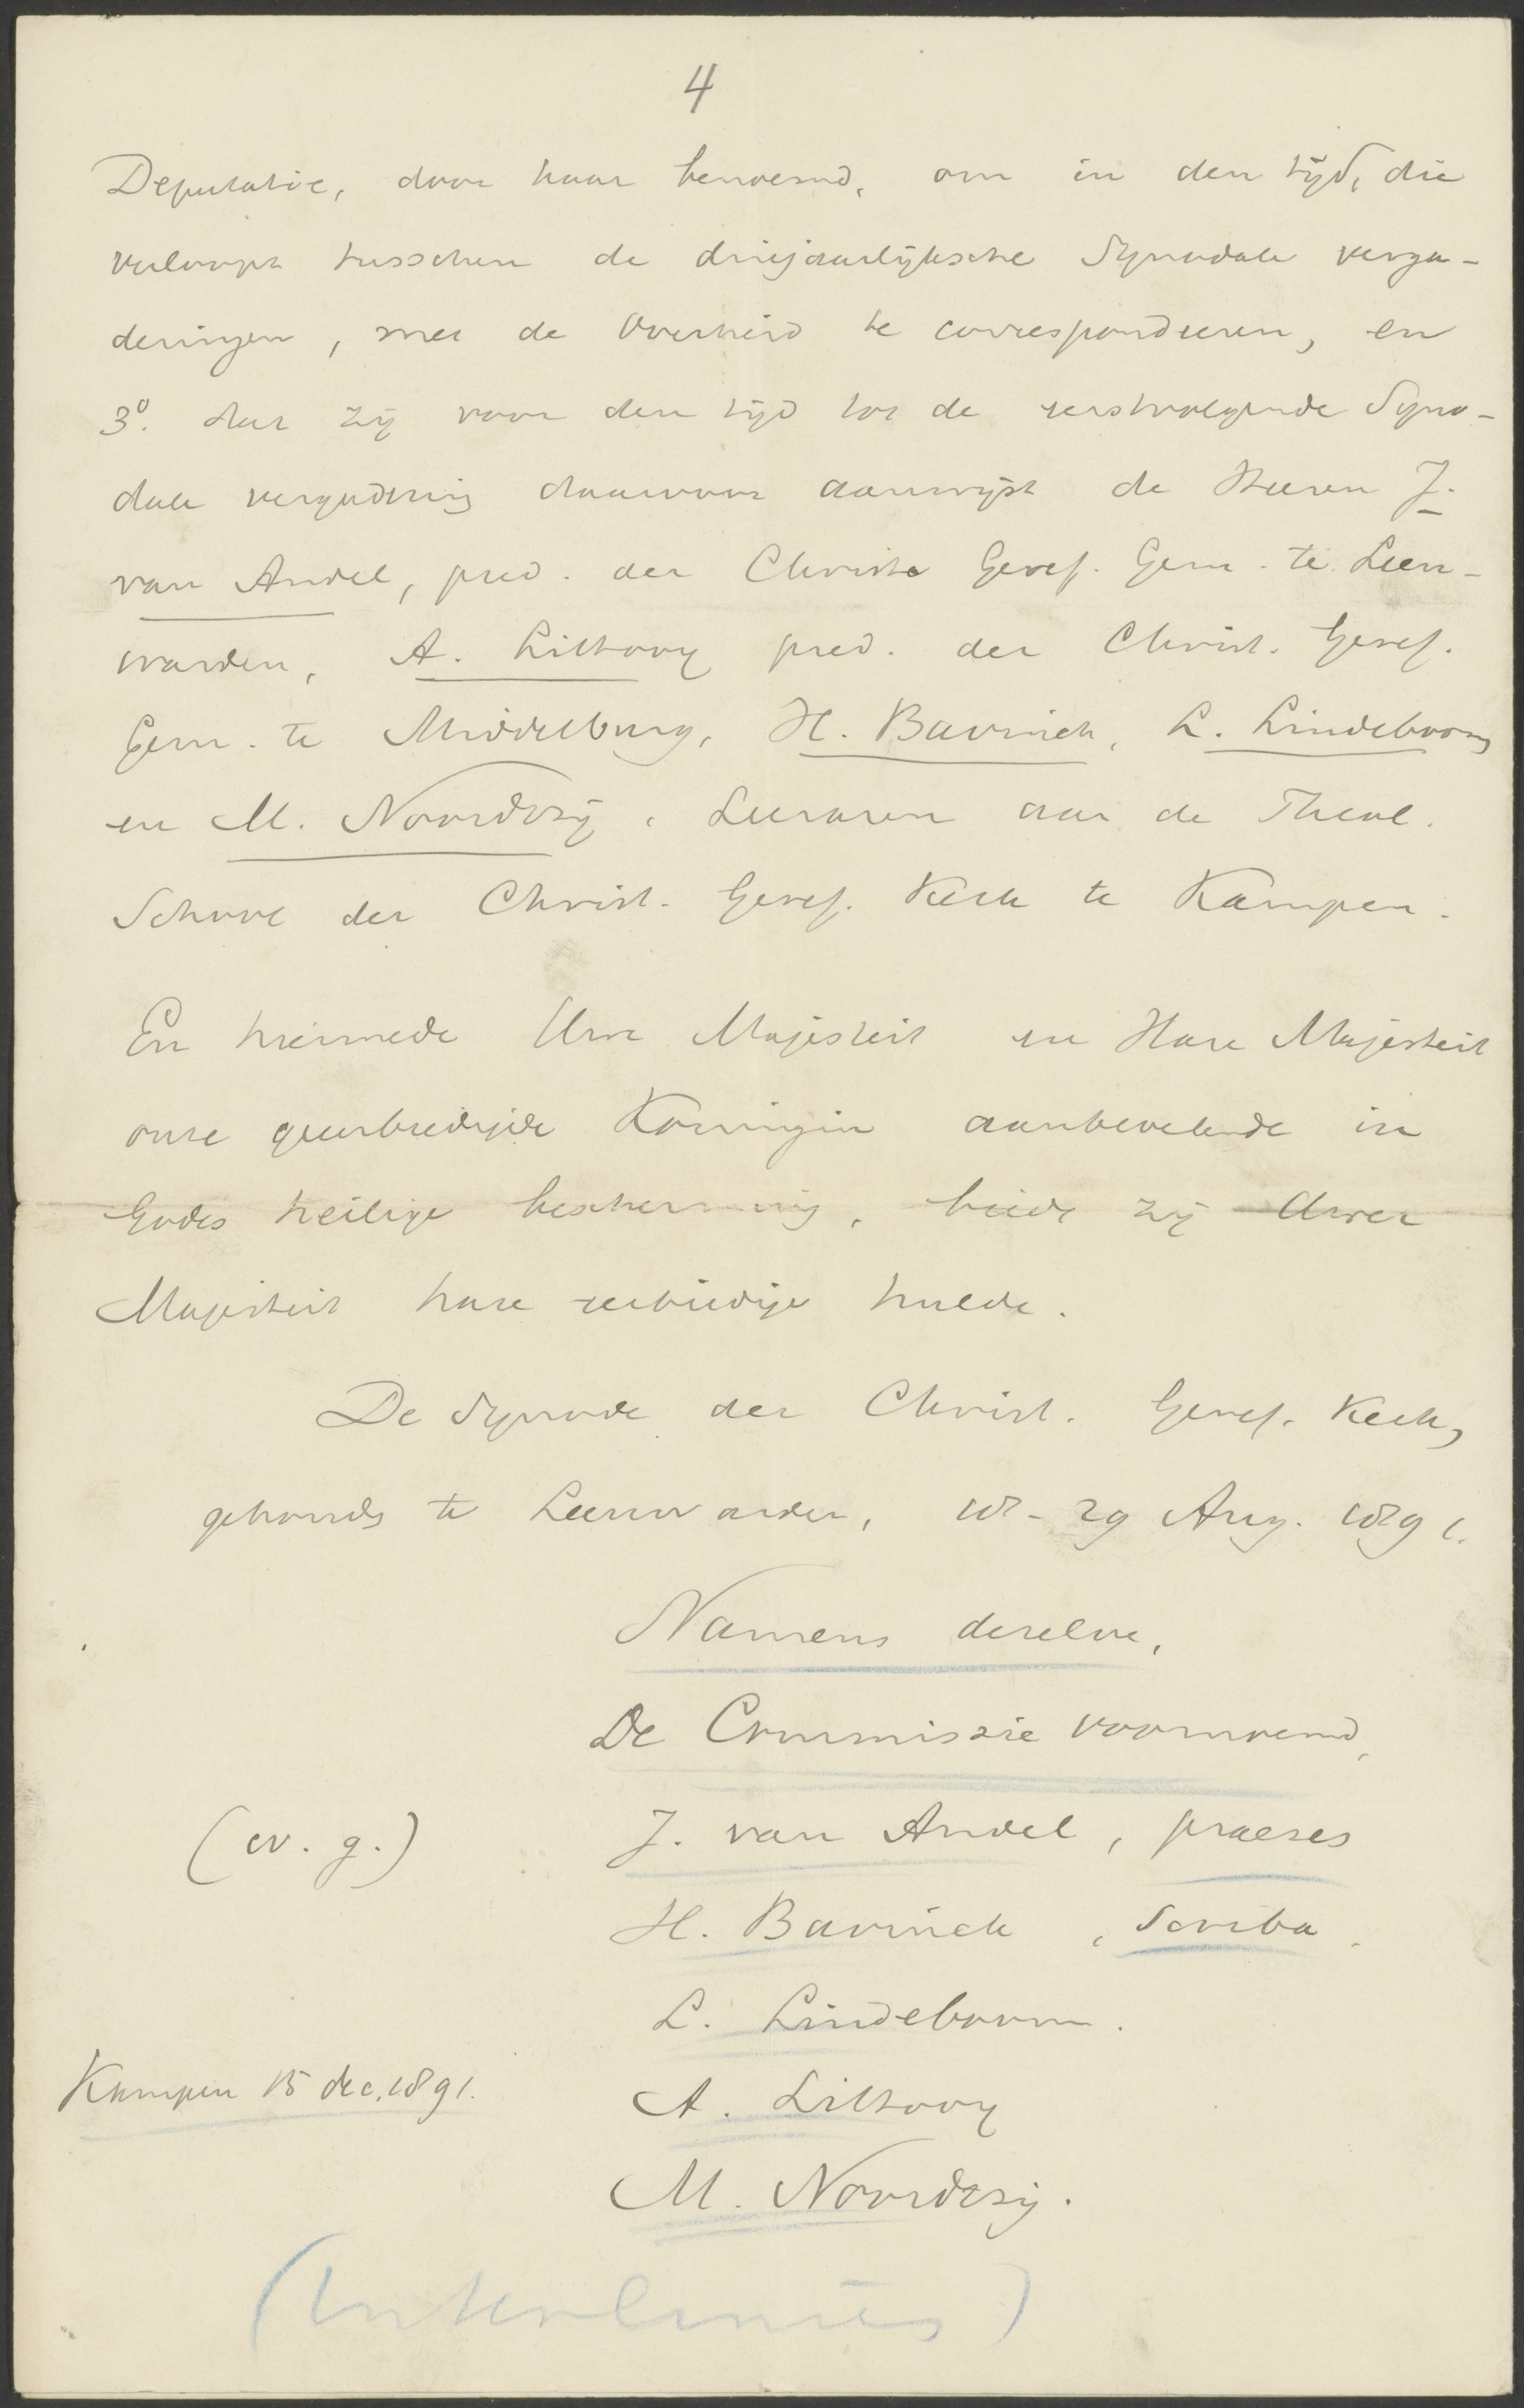 4
Deputatie, door haar benoemd, om in den tijd, die
verloopt tusschen de driejaarlijksche Synodale verga-
deringen, met de Overheid te correspondeeren, en
3o. dat zij voor den tijd tot de eerstvolgende Syno-
dale vergadering daarvoor aanwijst de Heeren J.
van Andel, pred. der Christ. Geref. Gem. te Leeu-
warden, A. Littooy pred. der Christ. Geref.
Gem. te Middelburg, H. Bavinck, L. Lindeboom
en M. Noordtzij, Leeraren aan de Theol.
School der Christ. Geref. Kerk te Kampen.
En hiermede Uwe Majesteit en Hare Majesteit
onze geeerbiedigde Koningin aanbevelende in
Godes heilige bescherming, biedt zij Uwer
Majesteit hare eerbiedige hulde.
De Synode der Christ. Geref. Kerk,
gehouden te Leeuwarden, 18-29 Aug. 1891.
Namens dezelve,
De Commissie voornoemd,
(w. g.) J. van Andel, praeses
H. Bavinck, Scriba.
L. Lindeboom.
Kampen 15 dec. 1891.
A. Littooy
M. Noordtzij.
(Interlinies)